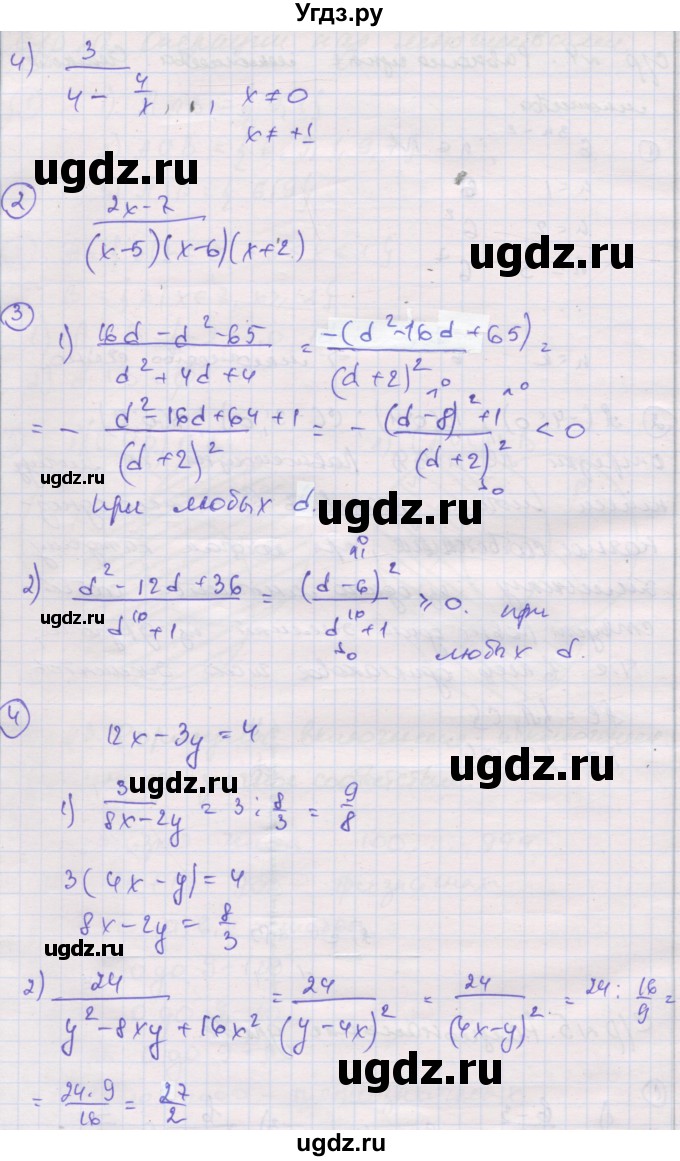 Угдз.ру
4) 3/(4 - 4/x), x ≠ 0
x ≠ +1
ugdz.ru
ugdz.ru
② (2x-7)/((x-5)(x-6)(x+2))
ugdz.ru
③ 1) (16d - d² - 65)/(d² + 4d + 4) = -(d² - 16d + 65)/(d+2)² =
= - (d² - 16d + 64 + 1)/(d+2)² = - ((d-8)² + 1)/(d+2)² < 0
ugdz.ru
ugdz.ru
при любых d.
2) (d² - 12d + 36)/(d¹⁰ + 1) = (d-6)²/(d¹⁰ + 1) ≥ 0. при
ugdz.ru
любых d.
④ 12x - 3y = 4
ugdz.ru
ugdz.ru
1) 3/(8x-2y) = 3 : 8/3 = 9/8
3(4x - y) = 4
8x - 2y = 8/3
ugdz.ru
2) 24/(y² - 8xy + 16x²) = 24/(y-4x)² = 24/(4x-y)² = 24 : 16/9 =
ugdz.ru
= 24·9/16 = 27/2
ugdz.ru
ugdz.ru